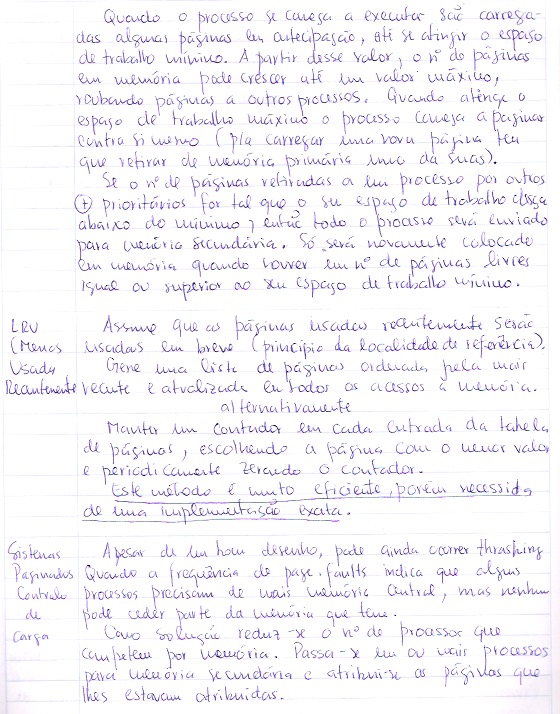 Quando o processo se começa a executar são carrega-
das algumas páginas em antecipação, até se atingir o espaço
de trabalho mínimo. A partir desse valor, o nº de páginas
em memória pode crescer até um valor máximo,
roubando páginas a outros processos. Quando atinge o
espaço de trabalho máximo o processo começa a paginar
contra si mesmo (p/a carregar uma nova página tem
que retirar de memória primária uma da suas).
Se o nº de páginas retiradas a um processo por outros
(+) prioritários for tal que o seu espaço de trabalho desça
abaixo do mínimo, então todo o processo será enviado
para memória secundária. Só será novamente colocado
em memória quando houver um nº de páginas livres
igual ou superior ao seu espaço de trabalho mínimo.
LRU Assume que as páginas usadas recentemente serão
(Menos usadas em breve (princípio da localidade de referência).
Usada Gere uma lista de páginas ordenada pela mais
Recentemente recente e atualizada em todos os acessos à memória.
alternativamente
Manter um contador em cada entrada da tabela
de páginas, escolhendo a página com o menor valor
e periodicamente zerando o contador.
Este método é muito eficiente, porém necessida
de uma implementação exata.
Sistemas Apesar de um bom desenho, pode ainda ocorrer thrashing
Paginados Quando a frequência de page-faults indica que alguns
Controlo processos precisam de mais memória central, mas nenhum
de pode ceder parte da memória que tem.
Carga Como solução reduz-se o nº de processos que
competem por memória. Passa-se um ou mais processos
para memória secundária e atribui-se as páginas que
lhes estavam atribuidas.